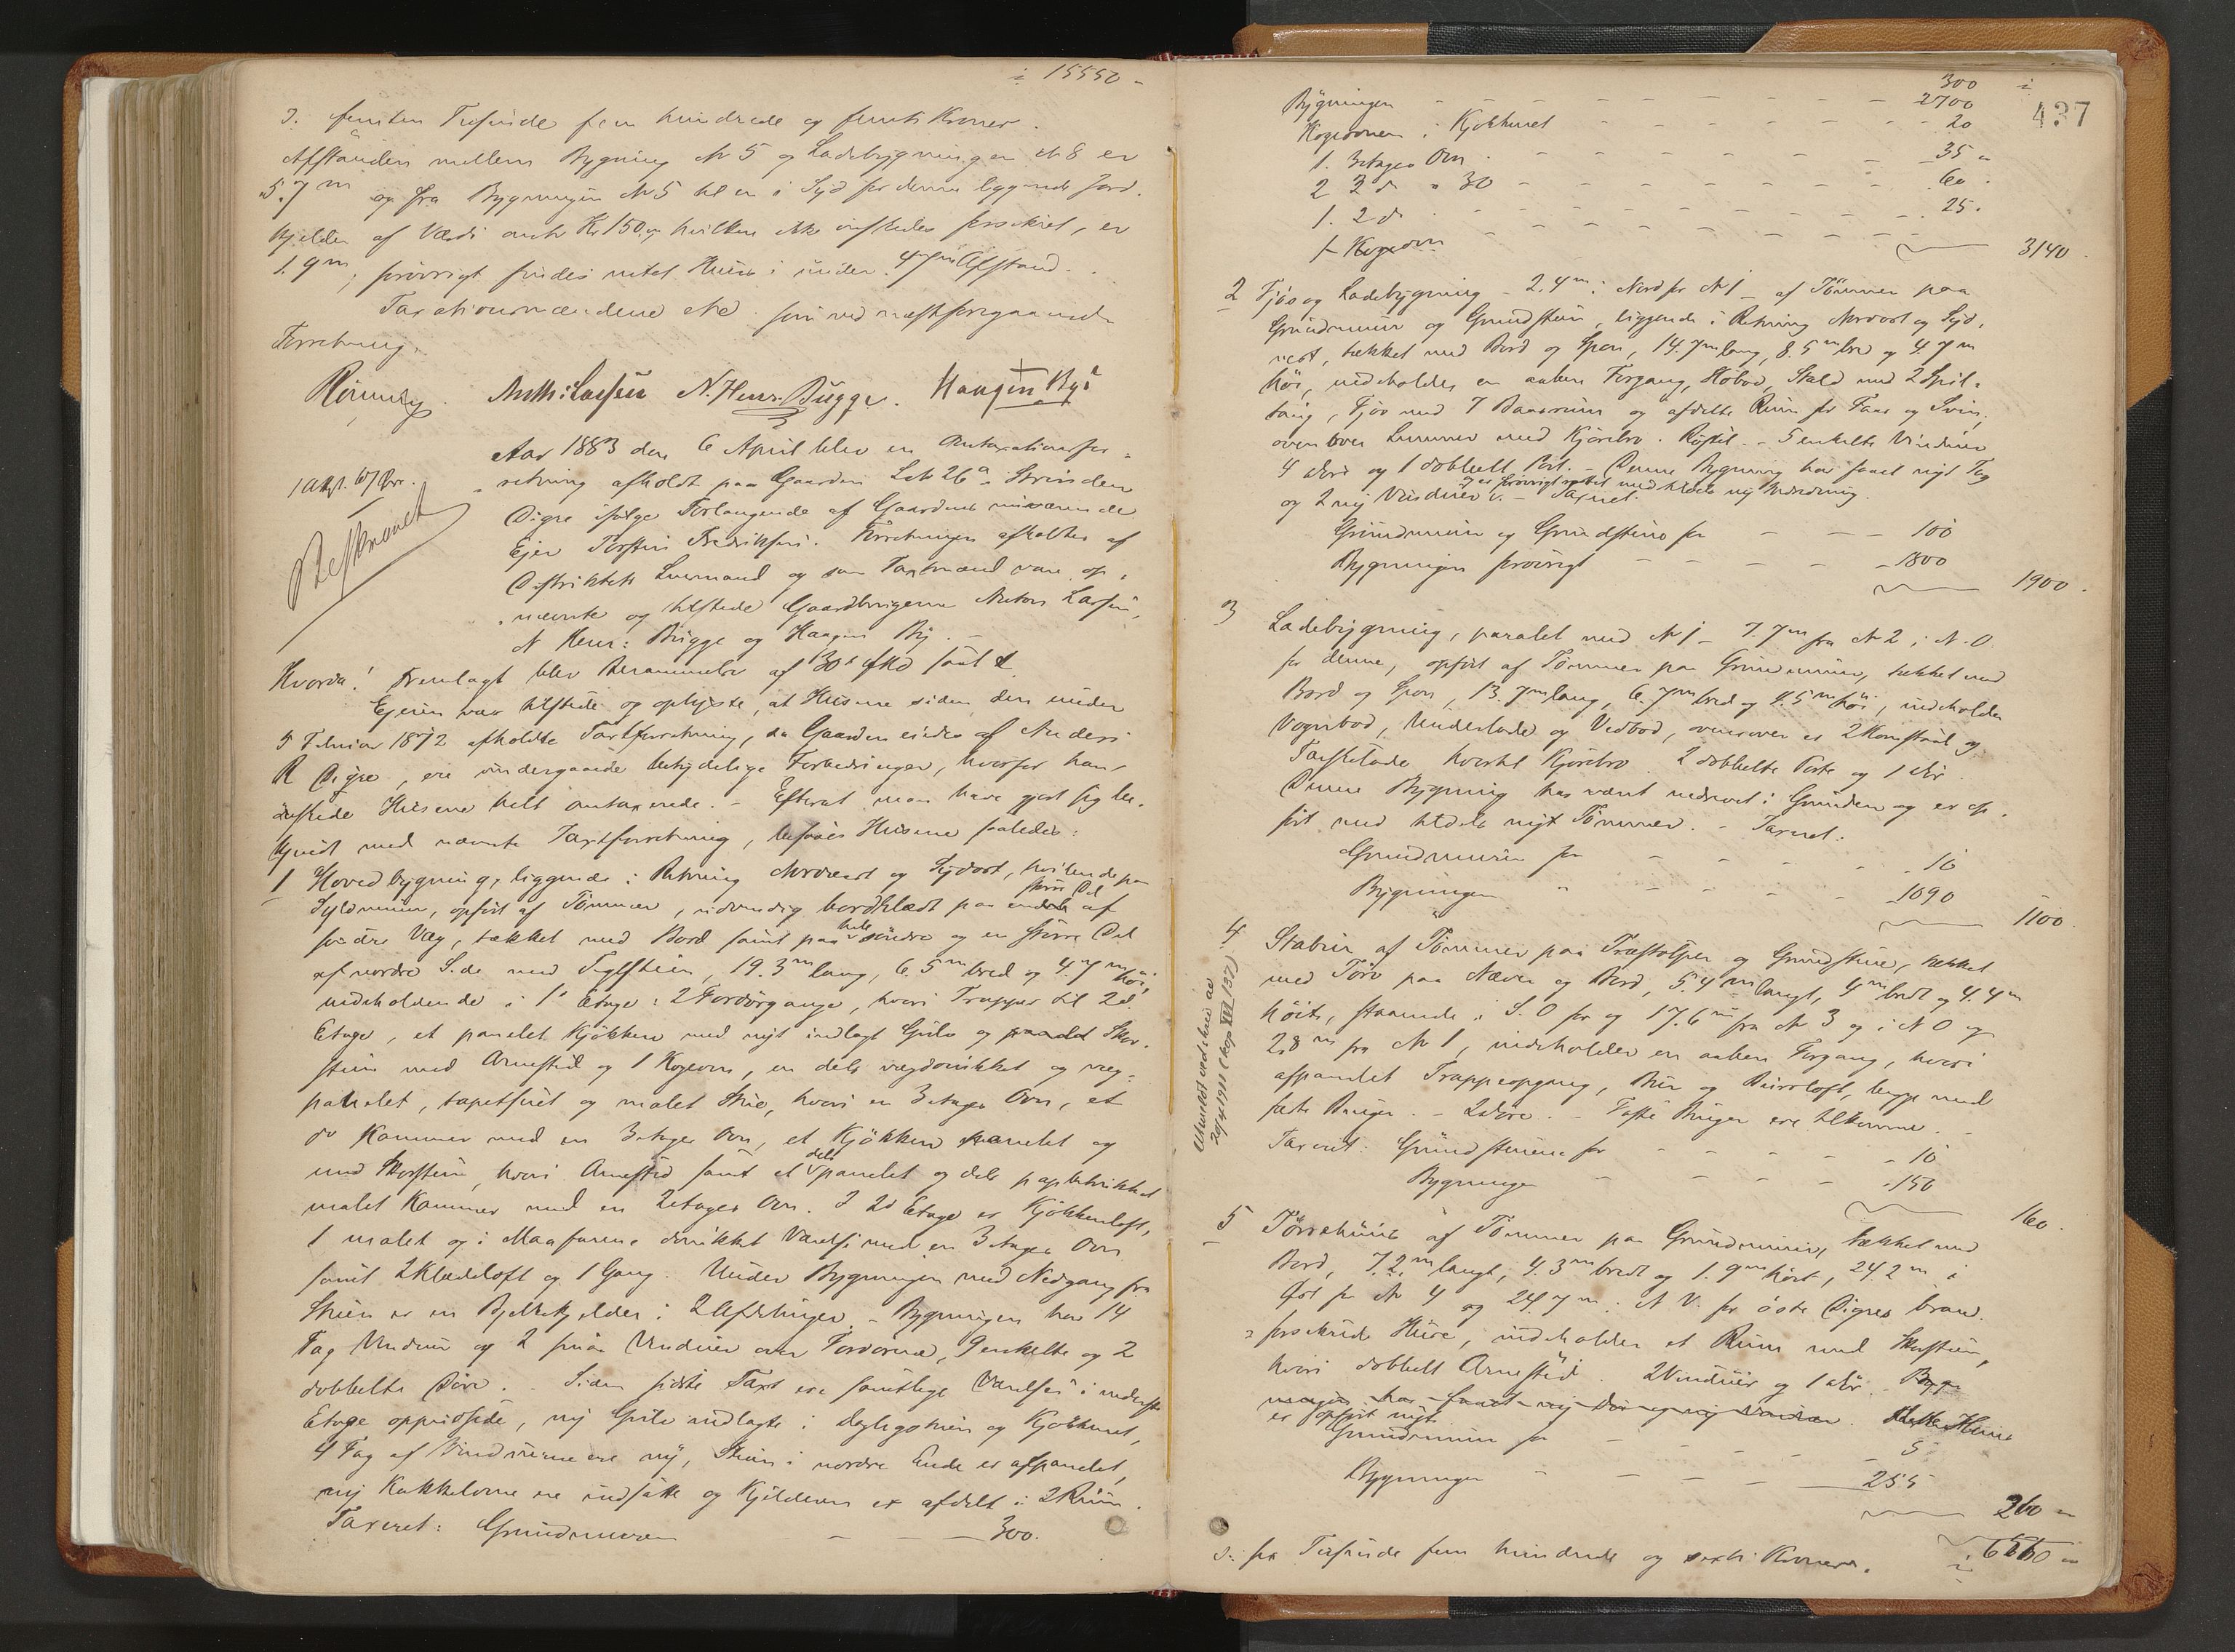 i 15550 –
ɔ: femten Tusinde fem hundrede og femti Kroner.
Afstanden mellem Bygning N 5 og Ladebygningen N 8 er
5.7 m og fra Bygningen N 5 til en i Syd for denne liggende Jord-
kjelder af Værdi omtr Kr 150, hvilken ikke ønskedes forsikret, er
1.9 m, forøvrigt findes intet Huus i under Afstand.
Taxationsmændene som ved næstforegaaende
Forretning.
Rønning. Anth: Larssen N. Henr. Bugge. Haagen By
Aar 1883 den 6 April blev en Omtaxationsfor-
retning afholdt paa Gaarden Lb 26 a Strinden
Digre ifølge Forlangende af Gaardens nuværende
Ejer Torsten Fredriksen. Forretningen afholdtes af
Distriktets Lensmand og som Taxtmænd vare op-
nævnte og tilstede Gaardbrugerne Anton Larssen,
N Henr: Bugge og Haagen By. –
Beskrevet
Hvorda! Fremlagt blev Berammelse af 30 f Md samt
Ejeren var tilstede og oplyste, at Husene siden den under
5 Februar 1872 afholdte Taxtforretning, da Gaarden eiedes af Anders
R Digre, ere undergaaede betydelige Forbedringer, hvorfor han
ønskede Husene helt omtaxerede. – Efterat man havde gjort sig be-
kjendt med nævnte Taxtforretning, befares Husene saaledes:
1 Hovedbygning, liggende i Retning Nordvest og Sydost, hvilende paa
Syldmuur, opført af Tømmer, udvendig bordklædt paa større Del af
søndre Væg, tækket med Bord samt paa hele søndre og en større Del
af nordre Side med Teglsteen, 19.3 m lang, 6.5 m bred og 4.7 m høi,
indeholdende i 1ste Etage: 2 Fordørgange, hvori Trapper til 2d
Etage, et panelet Kjøkken med nyt indlagt Gulv og Skor-
steen med Arnested og 1 Kogeovn, en dels vægdørikket og veg-
panelet, tapetseret og malet Stue, hvori en 3 etages Ovn, et
do Kammer med en 3 etages Ovn, et Kjøkken panelet og
med Skorsteen, hvori Arnested samt et dels panelet og dels papbetrukket
malet Kammer med en 2 etages Ovn. I 2d Etage er Kjøkkenloft,
1 malet og i Maafarne Værelse med en 3 etages Ovn
samt 2 Klædeloft og 1 Gang. Under Bygningen med Nedgang fra
Stuen er en Bjelkekjelder i 2 Afdelinger. – Bygningen har 14
Fag Vinduer og 2 smaa Vinduer over Fordørene, 9 enkelte og 2
dobbelte Døre. – Siden sidste Taxt ere samtlige Værelser i nederste
Etage oppudsede, ny Gulv indlagte i Dagligstuen og Kjøkkenet,
4 Fag af Vinduerne ere ny, Stuen i nordre Ende er afpanelet,
ny Kakkelovne ere indsatte og Kjelderen er afdelt i 2 Rum.
Taxeret: Grundmuren – – 300.
437
300
Bygningen – – – 2700
Kogeovnen i Kjøkkenet – – – 20
1. 3 etages Ovn – – – 35 –
2 3 do a 30 – – – 60.
1. 2 do – – – 25.
1 Kogeovn
3140.
2 Fjøs og Ladebygning – 2.4 m i Nord for N 1 – af Tømmer paa
Grundmuur og Grundsteen, liggende i Retning Nordost og Syd-
vest, tækket med Bord og Spon, 14.7 m lang, 8.5 m bred og 4.7 m
høi, indeholder en aaben Forgang, Høbod, Stald med 2 Spil-
taug, Fjøs med 7 Baasrum og afdelte Rum for Faar og Sviin,
ovenover Lemmer med Kjørebro. 5 enkelte Vinduer
4 Døre og 1 dobbelt Port. – Denne Bygning har faaet nyt Tag
og 2 ny Vinduer og er forøvrigt med tildels ny Indredning. – Taxeret.
Grundmuren og Grundsteene for – – – 100
Bygningen forøvrigt – – – 1800
1900.
3 Ladebygning, paralel med N 1 – 7.7 m fra N 2 i N.O.
for denne, opført af Tømmer paa Grundmuur, tækket med
Bord og Spon, 13.7 m lang, 6.7 m bred og 4.5 m høi, indeholder
Vognbod, Underlade og Vedbod, ovenover er 2 Kornstaal og
Tærskelade hvortil Kjørebro. 2 dobbelte Porte og 1 Dør.
Denne Bygning har været nedrevet i Grunden og er op-
ført med tildels nyt Tømmer. – Taxeret.
Grundmuren for – – – 10
Bygningen – – – 1090
1100.
4 Stabur af Tømmer paa Træstolper og Grundsteene, tækket
med Torv paa Næver og Bord, 5.4 m langt, 4 m bredt og 4.4 m
høit, staaende i S.O for og 17.6 m fra N 3 og i N O og
2.8 m fra N 1, indeholder en aaben Forgang, hvori
afpanelet Trappeopgang, Bur og Buursloft, begge med
faste Binger. – 2 Døre. – Faste Binger ere tilkomne. –
Taxeret: Grundsteenene for – – – 10
Bygningen – – – 150
160.
5 Tørrehuus af Tømmer paa Grundmuur, tækket med
Bord, 7.2 m langt, 4.3 m bredt og 1.9 m høit, 24.2 m i
Øst for N 4 og 24.7 m i N V. for østre Digres brand-
forsikrede Huse, indeholder et Rum med Skorsteen,
hvori dobbelt Arnested. 2 Vinduer og 1 Dør. – Byg-
ningen har faaet ny Dør og ny Vinduer. Dette Huus
er opført nyt.
Grundmuren for – – – 5
Bygningen – – – 255
260 –
i 6560 –
ɔ: sex Tusinde fem hundrede og sexti Kroner.